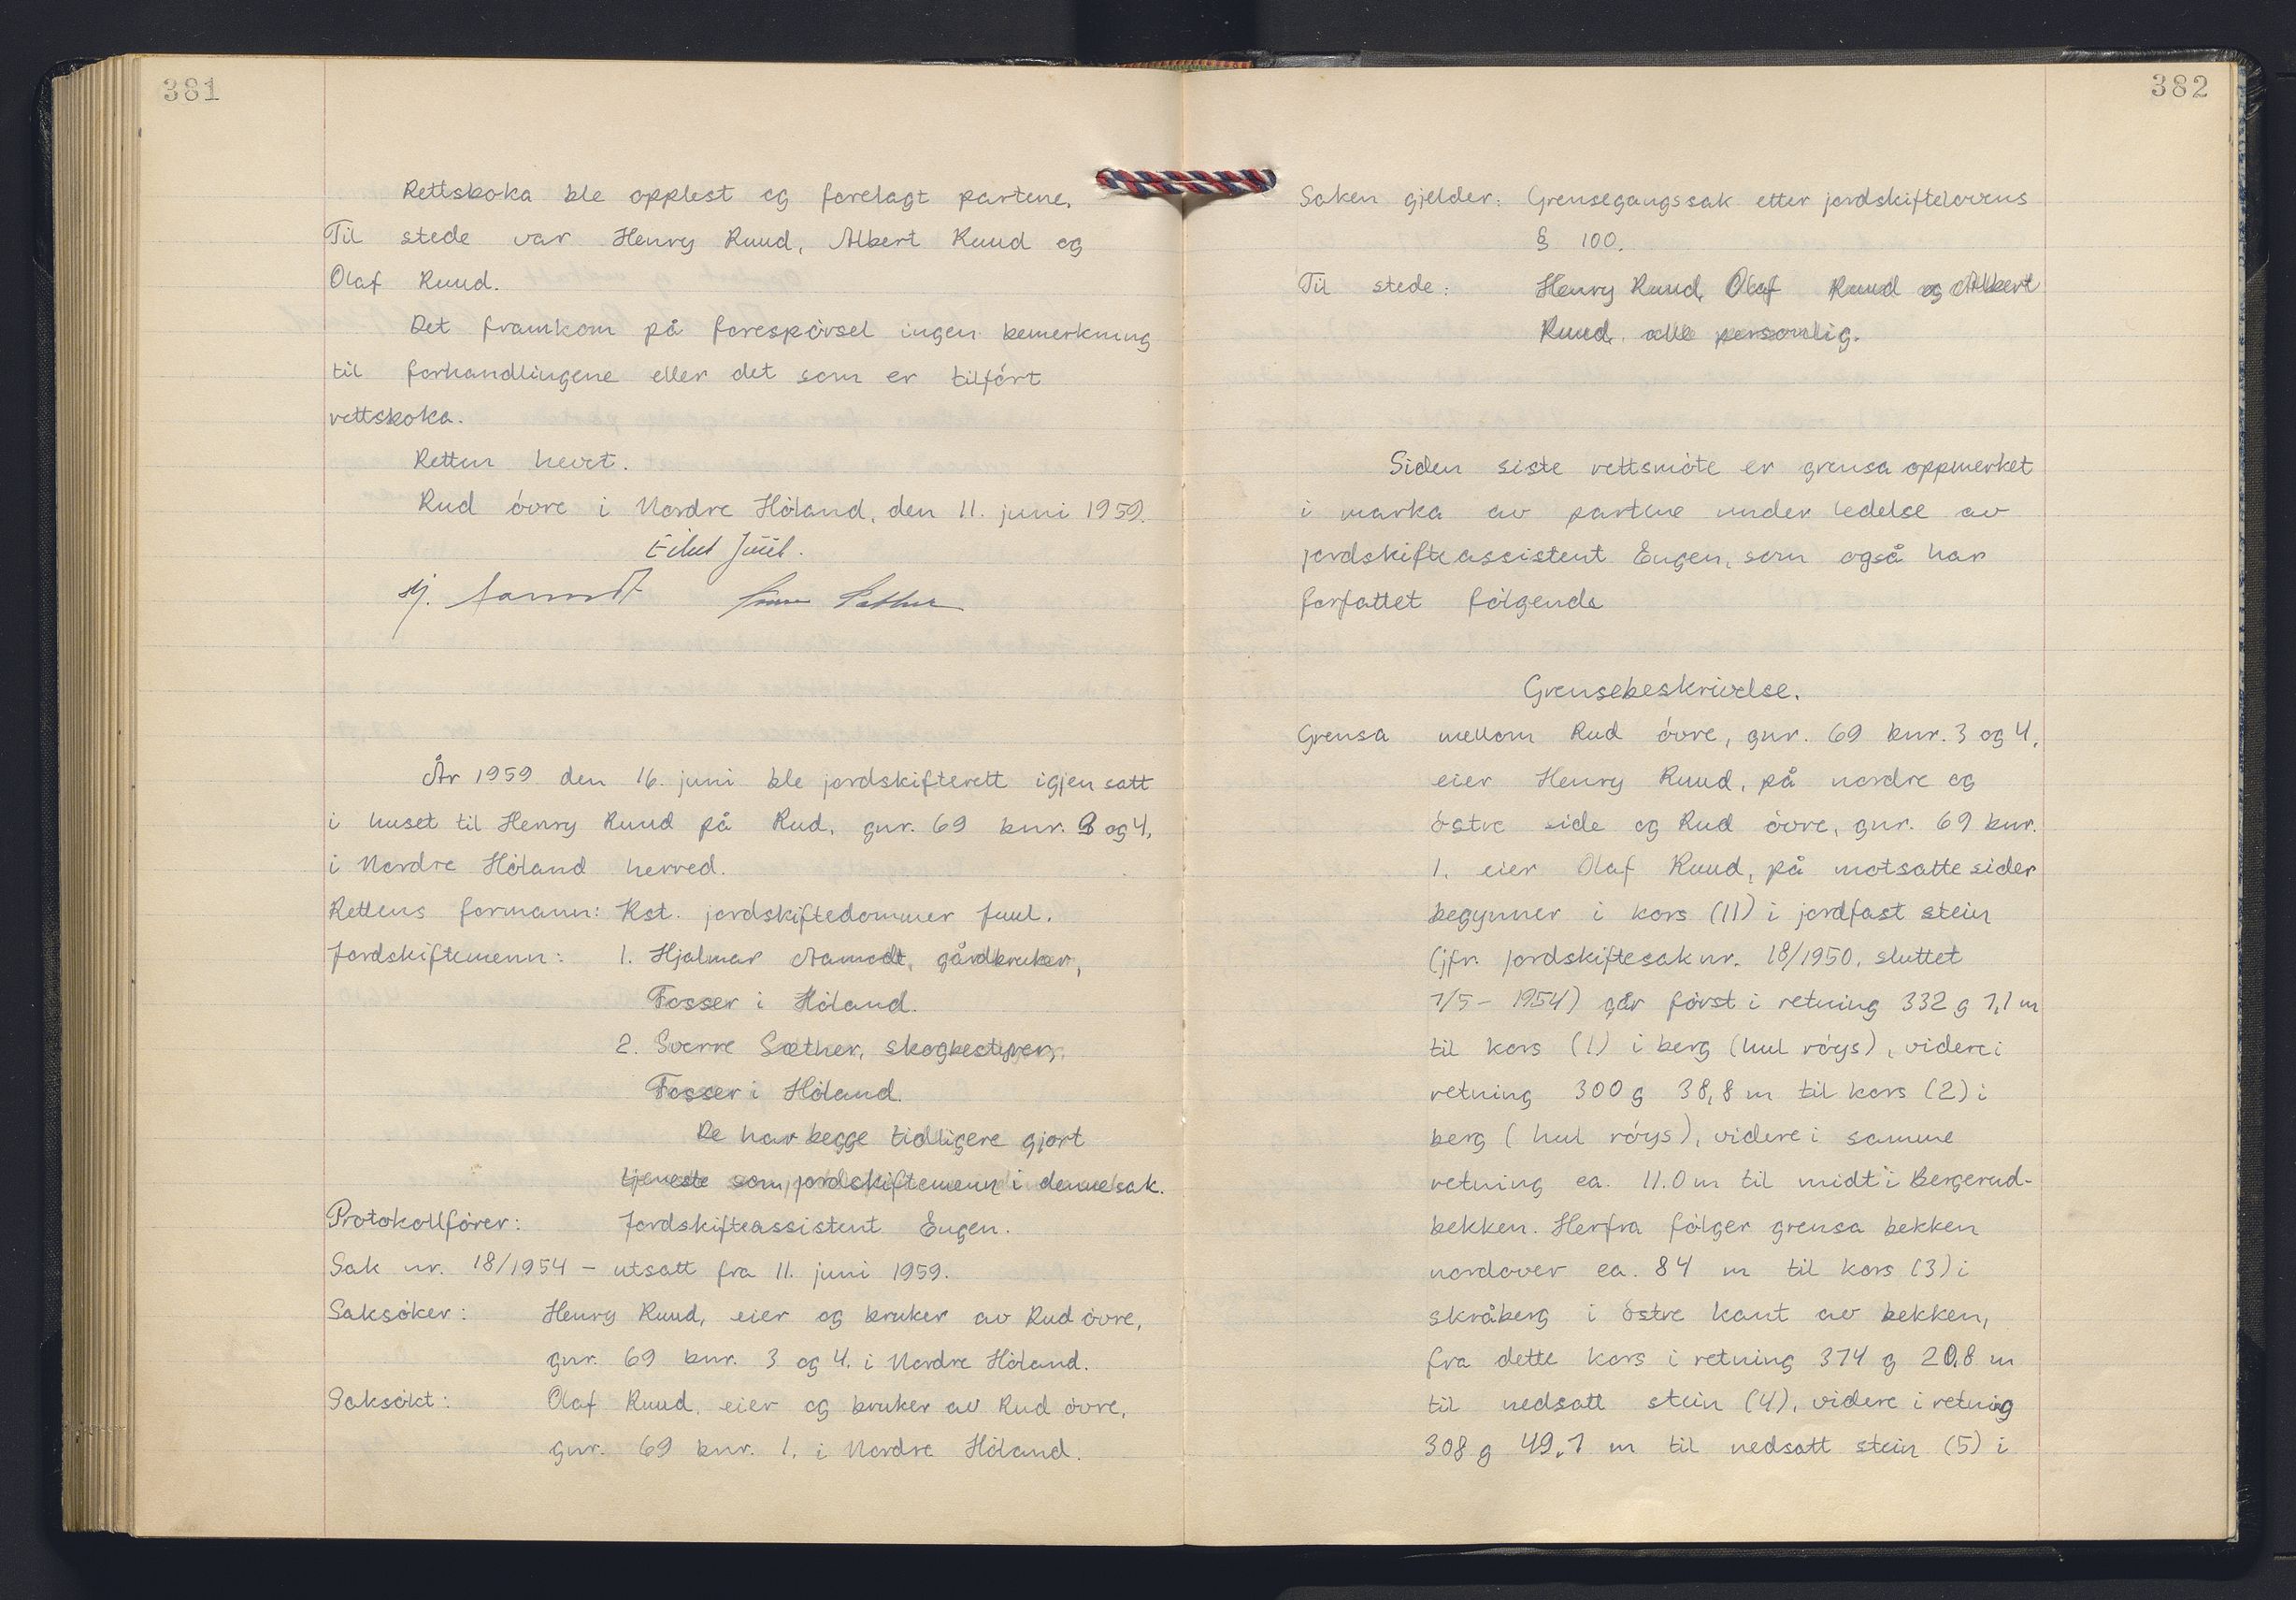 381
Rettsboka ble opplest og forelagt partene.
Til stede var Henry Ruud, Albert Ruud og
Olaf Ruud.
Det framkom på forespørsel ingen bemerkning
til forhandlingene eller det som er tilført
rettsboka.
Retten hevet.
Rud øvre i Nordre Høland, den 11. juni 1959.
Juul.
Hj. Aamodt Sverre Sæther
År 1959 den 16. juni ble jordskifterett igjen satt
i huset til Henry Ruud på Rud, gnr. 69 bnr. 3 og 4,
i Nordre Høland herred.
Rettens formann: Kst. jordskiftedommer Juul.
Jordskiftemenn: 1. Hjalmar Aamodt, gårdbruker,
Fosser i Høland.
2. Sverre Sæther, skogbestyrer,
Fosser i Høland.
De har begge tidligere gjort
tjeneste som jordskiftemenn i denne sak.
Protokollfører: Jordskifteassistent Eugen.
Sak nr. 18/1954 – utsatt fra 11. juni 1959.
Saksøker: Henry Ruud, eier og bruker av Rud øvre,
gnr. 69 bnr. 3 og 4. i Nordre Høland.
Saksøkt: Olaf Ruud, eier og bruker av Rud øvre,
gnr. 69 bnr. 1. i Nordre Høland.
382
Saken gjelder: Grensegangssak etter jordskiftelovens
§ 100.
Til stede: Henry Ruud, Olaf Ruud og Albert
Ruud, alle personlig.
Siden siste rettsmøte er grensa oppmerket
i marka av partene under ledelse av
jordskifteassistent Eugen, som også har
forfattet følgende
Grensebeskrivelse.
Grensa mellom Rud øvre, gnr. 69 bnr. 3 og 4,
eier Henry Ruud, på nordre og
østre side og Rud øvre, gnr. 69 bnr.
1. eier Olaf Ruud, på motsatte sider
begynner i kors (11) i jordfast stein
(jfr. jordskiftesak nr. 18/1950, sluttet
7/5 – 1954) går først i retning 332 g 7,1 m
til kors (1) i berg (hul røys), videre i
retning 300 g 38,8 m til kors (2) i
berg (hul røys), videre i samme
retning ca. 11.0 m til midt i Bergerud-
bekken. Herfra følger grensa bekken
nordover ca. 84 m til kors (3) i
skråberg i østre kant av bekken,
fra dette kors i retning 374 g 20,8 m
til nedsatt stein (4), videre i retning
308 g 49,7 m til nedsatt stein (5) i